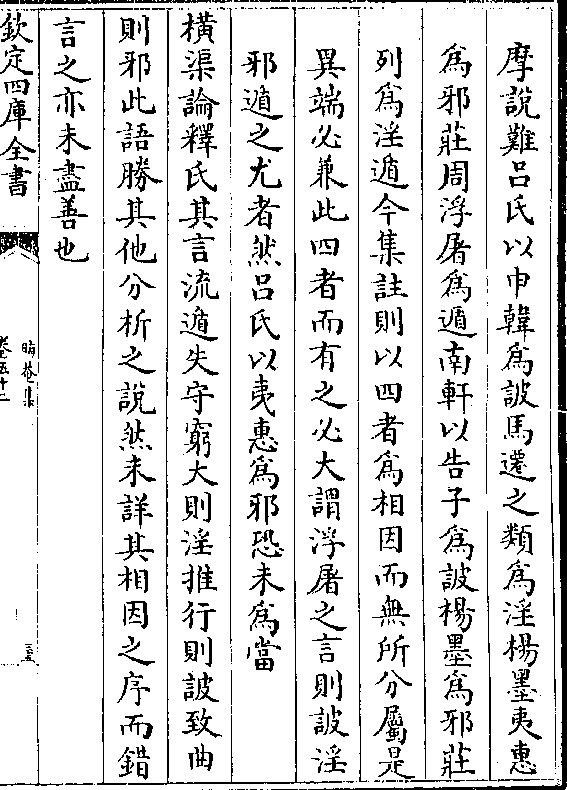 摩說難呂氏以申韓爲詖馬遷之類爲淫楊墨夷惠
爲邪莊周浮屠爲遁南軒以告子爲詖楊墨爲邪莊
列爲淫遁今集註則以四者爲相因而無所分屬是
異端必兼此四者而有之必大謂浮屠之言則詖淫
邪遁之尤者然呂氏以夷惠爲邪恐未爲當
橫渠論釋氏其言流遁失守窮大則淫推行則詖致曲
則邪此語勝其他分析之說然未詳其相因之序而錯
言之亦未盡善也
欽定四庫全書
晦菴集
卷五十二